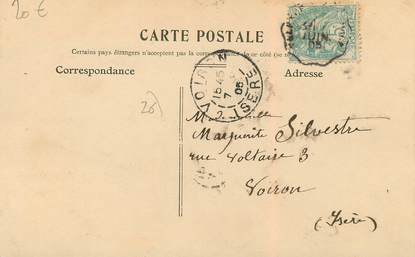 20€
CARTE POSTALE
Certains pays étrangers n'acceptent pas la correspondance de ce côté (se
Correspondance
Adresse
JUIN
05
VOIRON
15 45
7
05
ISÈRE
26)
Marguerite Silvestre
rue Voltaire 3
Voiron
(Isère)